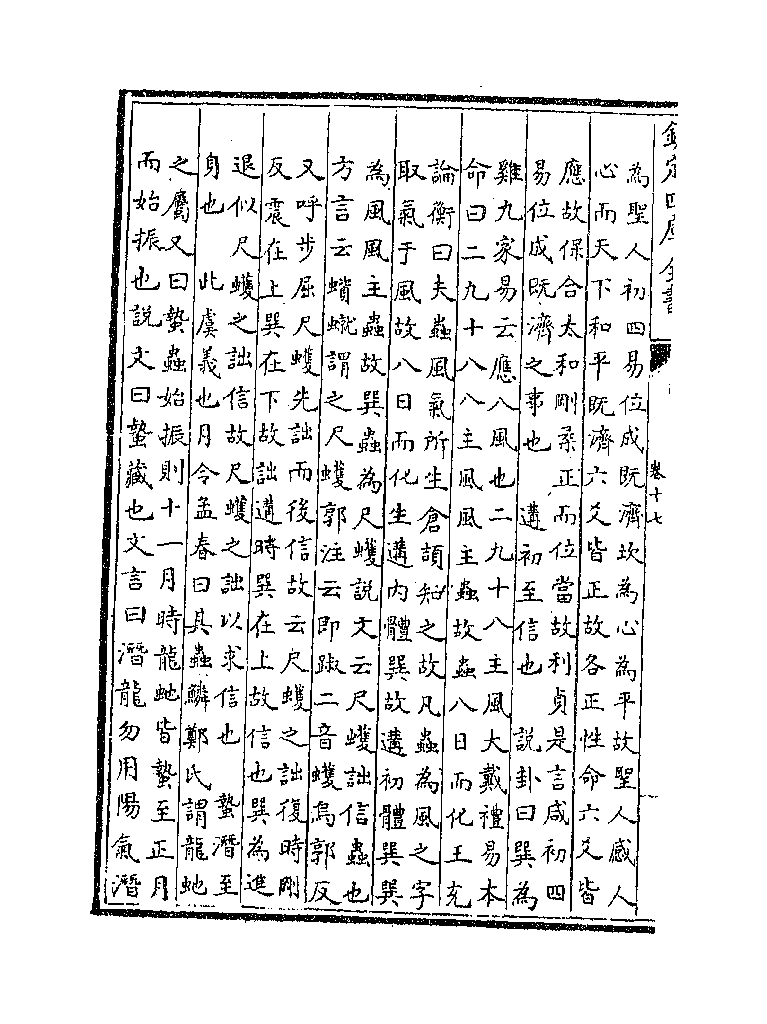 欽定四庫全書
卷十七
為聖人初四易位成既濟坎為心為平故聖人感人
心而天下和平既濟六爻皆正故各正性命六爻皆
應故保合太和剛柔正而位當故利貞是言咸初四
易位成既濟之事也　遘初至信也　說卦曰巽為
雞九家易云應八風也二九十八主風大戴禮易本
命曰二九十八八主風風主蟲故蟲八日而化王充
論衡曰夫蟲風氣所生倉頡知之故凡蟲為風之字
取氣于風故八日而化生遘内體巽故遘初體巽巽
為風風主蟲故巽蟲為尺蠖說文云尺蠖詘信蟲也
方言云謂之尺蠖郭注云即踧二音蠖烏郭反
又呼步屈尺蠖先詘而後信故云尺蠖之詘復時剛
反震在上巽在下故詘遘時巽在上故信也巽為進
退似尺蠖之詘信故尺蠖之詘以求信也　蟄潛至
身也　此虞義也月令孟春曰其蟲鱗鄭氏謂龍虵
之屬又曰蟄蟲始振則十一月時龍虵皆蟄至正月
而始振也說文曰蟄藏也文言曰潛龍勿用陽氣潛